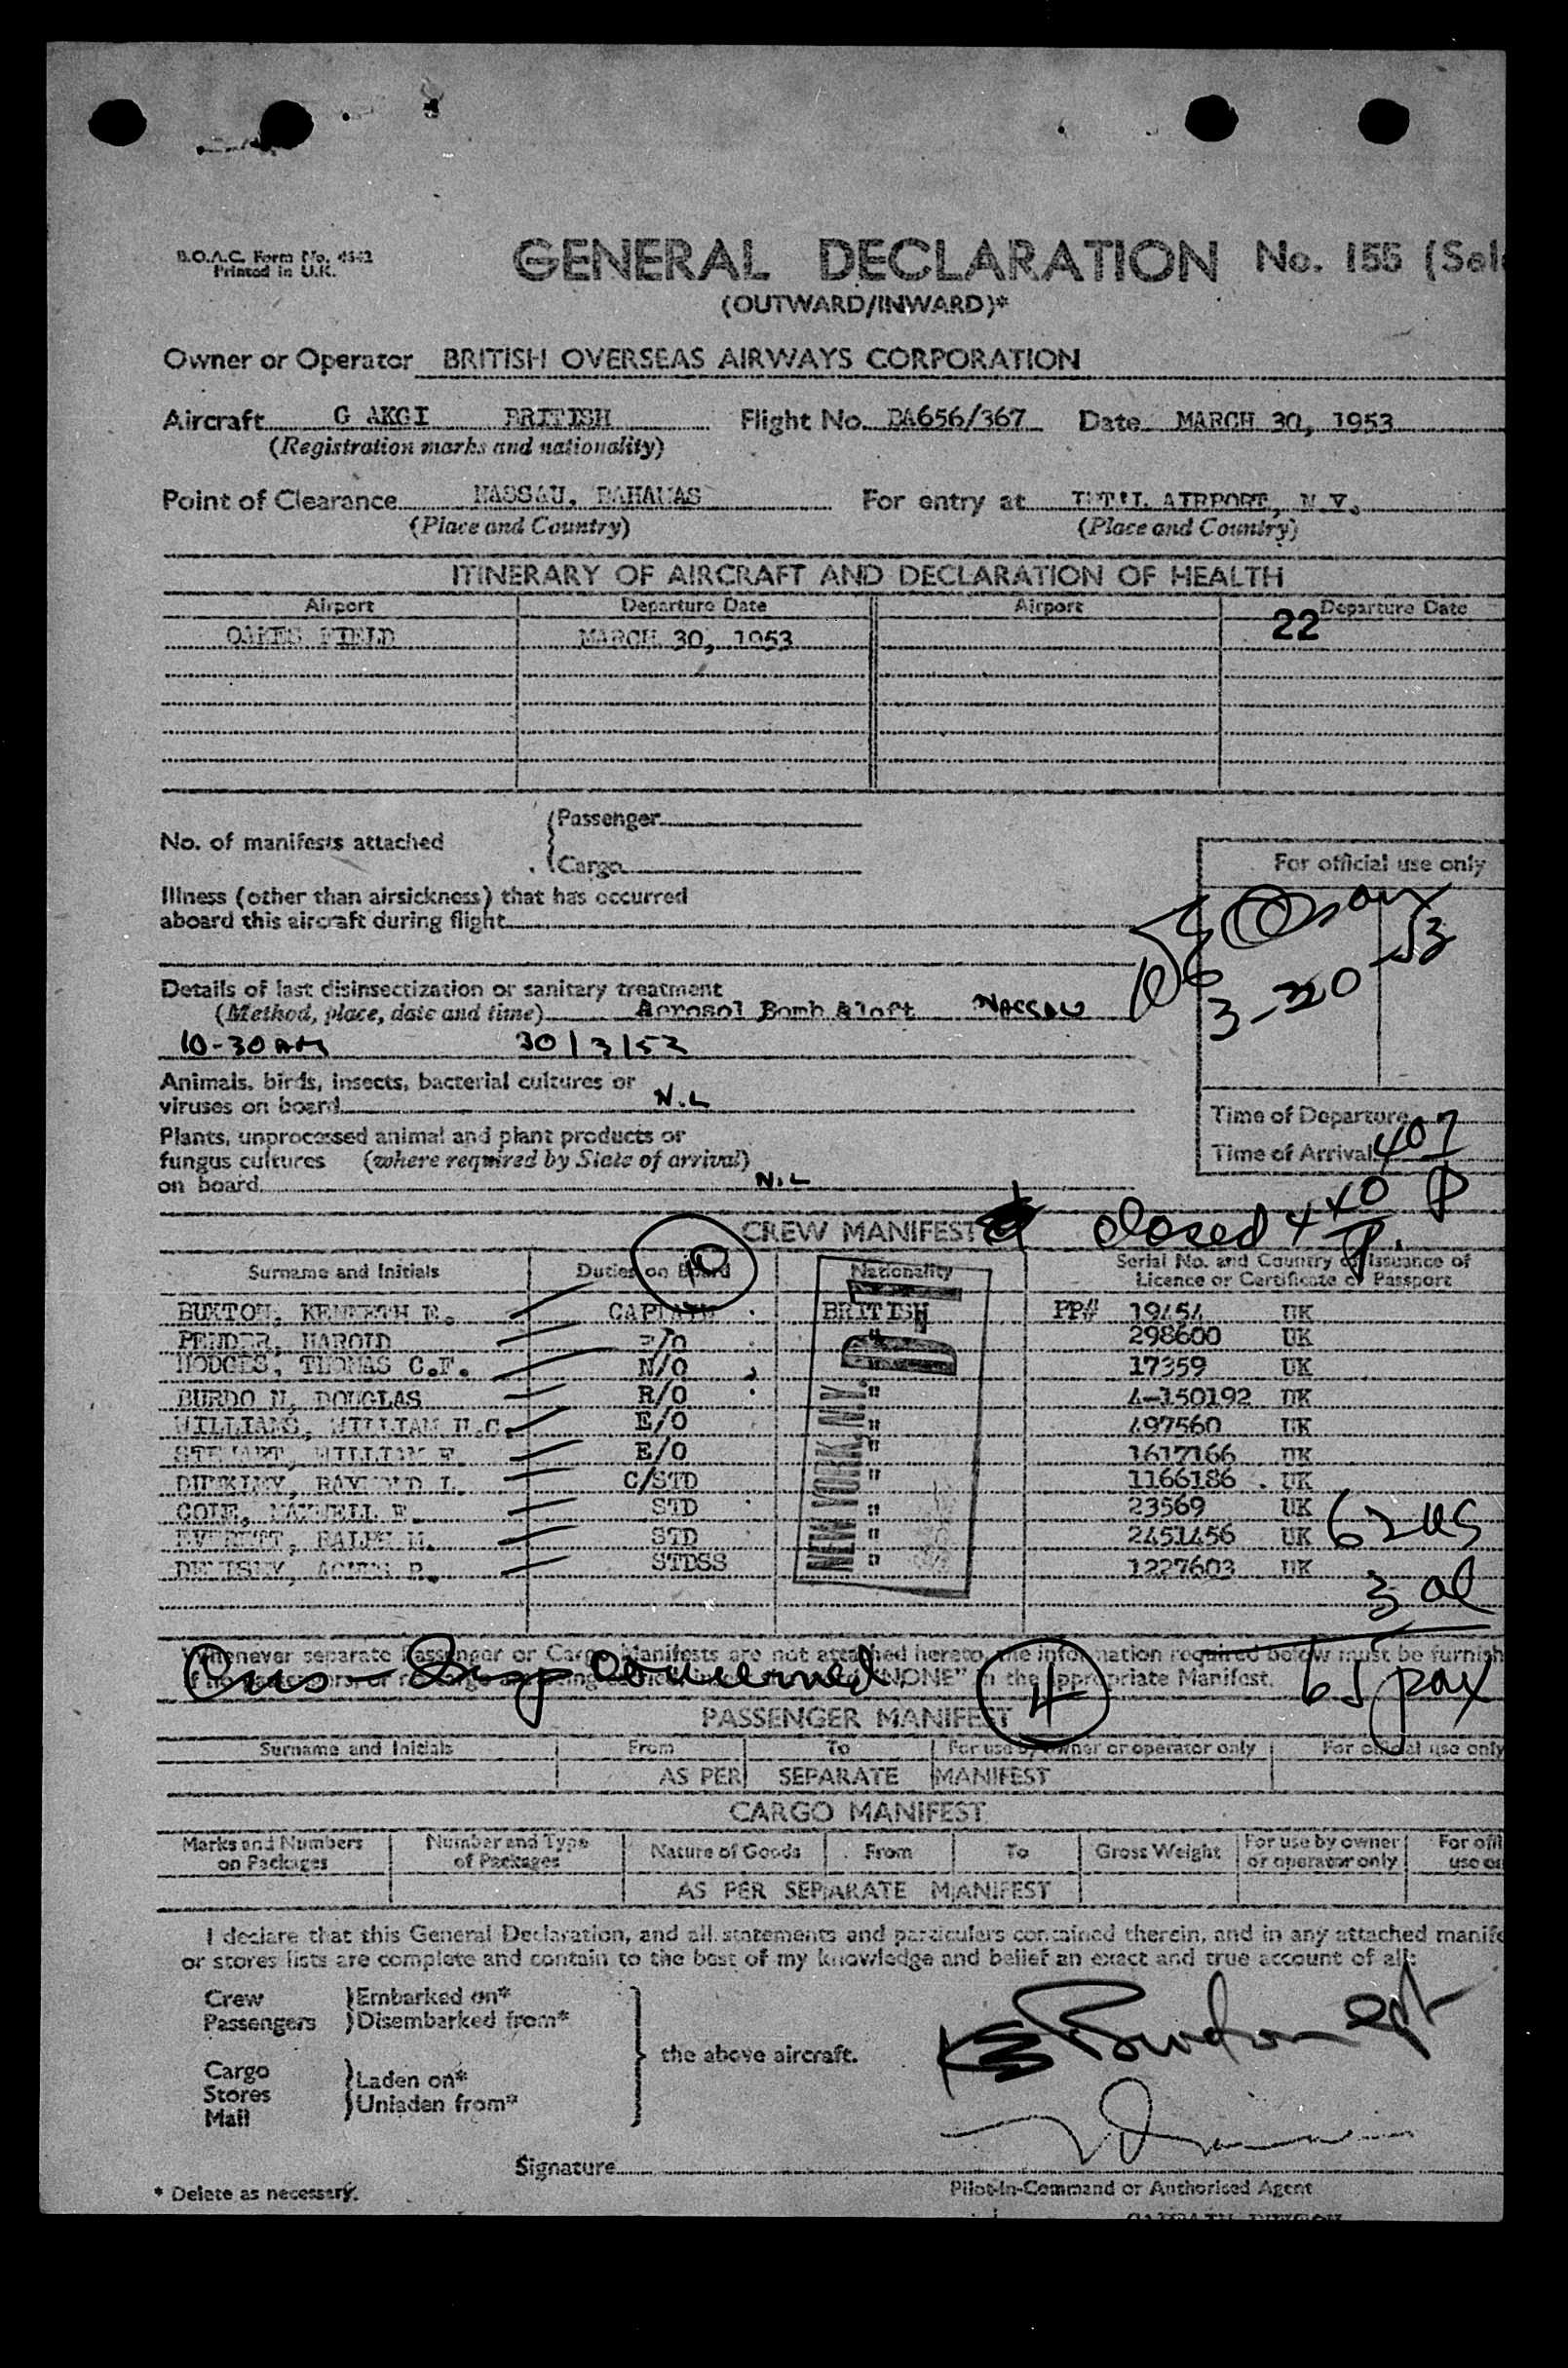 B.O.A.C. Form No. 4542
Printed in U.K.
GENERAL DECLARATION No. 155
(OUTWARD/INWARD)*
Owner or Operator BRITISH OVERSEAS AIRWAYS CORPORATION
Aircraft G AKGI BRITISH Flight No. BA656/367 Date MARCH 30, 1953
(Registration marks and nationality)
Point of Clearance NASSAU, BAHAMAS For entry at INT'L AIRPORT, N.Y.
(Place and Country) (Place and Country)
ITINERARY OF AIRCRAFT AND DECLARATION OF HEALTH
Airport Departure Date Airport Departure Date
22
OAKES FIELD MARCH 30, 1953
No. of manifests attached
Passenger
Cargo
For official use only
Illness (other than airsickness) that has occurred
aboard this aircraft during flight
Details of last disinsectization or sanitary treatment
(Method, place, date and time) Aerosol Bomb Aloft NASSAU
10-30 AM 30/3/53
Animals, birds, insects, bacterial cultures or
viruses on board NIL
Time of Departure
Plants, unprocessed animal and plant products or
fungus cultures (where required by State of arrival)
Time of Arrival 407 P
on board NIL
CREW MANIFEST closed 440 P.
10
Surname and Initials Duties on Board Nationality Serial No. and Country of Issuance of
Licence or Certificate or Passport
BUXTON, KENNETH E. CAPTAIN BRITISH PP# 19454 UK
PENDER, HAROLD F/O " 298600 UK
HODGES, THOMAS C.F. N/O " 17359 UK
BURDON, DOUGLAS R/O " A-150192 UK
WILLIAMS, WILLIAM H.C. E/O " 497560 UK
STEWART, WILLIAM F. E/O " 1617166 UK
RAYMOND L. C/STD " 1166186 UK
COLE, MAXWELL F. STD " 23569 UK
EVEREST, RALPH M. STD " 2451456 UK
STDSS " 1227603 UK
NEW YORK, N.Y.
62 us
3 al
65 pax
Whenever separate Passenger or Cargo Manifests are not attached hereto, the information required below must be furnish
"NONE" in the appropriate Manifest.
PASSENGER MANIFEST
Surname and Initials From To For use by owner or operator only For official use only
AS PER SEPARATE MANIFEST
CARGO MANIFEST
Marks and Numbers on Packages Number and Type of Packages Nature of Goods From To Gross Weight For use by owner or operator only
AS PER SEPARATE MANIFEST
I declare that this General Declaration, and all statements and particulars contained therein, and in any attached manife
or stores lists are complete and contain to the best of my knowledge and belief an exact and true account of all:
Crew Embarked on*
Passengers Disembarked from*
the above aircraft.
Cargo Laden on*
Stores Unladen from*
Mail
Signature
* Delete as necessary. Pilot-in-Command or Authorised Agent